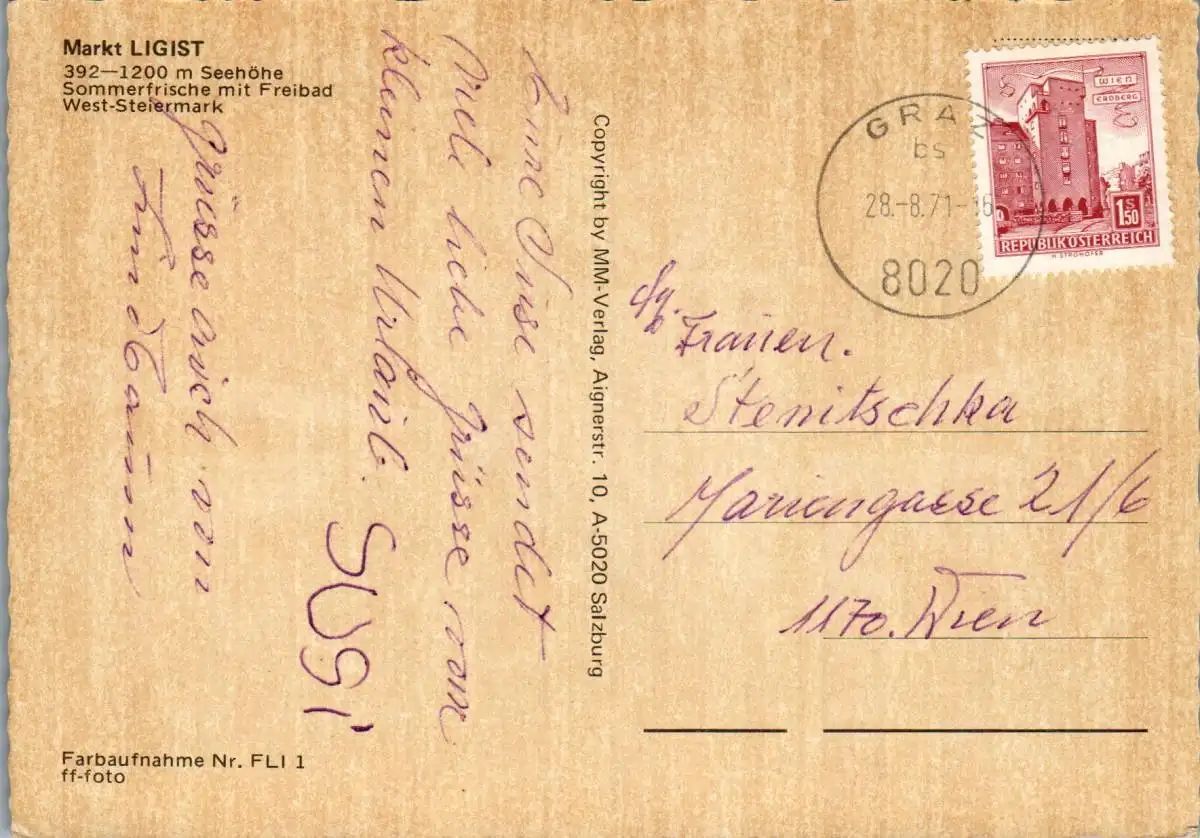 Markt LIGIST
392—1200 m Seehöhe
Sommerfrische mit Freibad
West-Steiermark
Eine Suse sendet
viele liebe Grüsse vom
kleinen Urlaub.
SUSI
Grüsse auch von
Copyright by MM-Verlag, Aignerstr. 10, A-5020 Salzburg
GRAZ
bs
28.-8.71-16
8020
WIEN
ERDBERG
1S50
REPUBLIK ÖSTERREICH
H. STROHOFER
Frauen.
Stenitschka
Mariengasse 21/6
1170. Wien
Farbaufnahme Nr. FLI 1
ff-foto